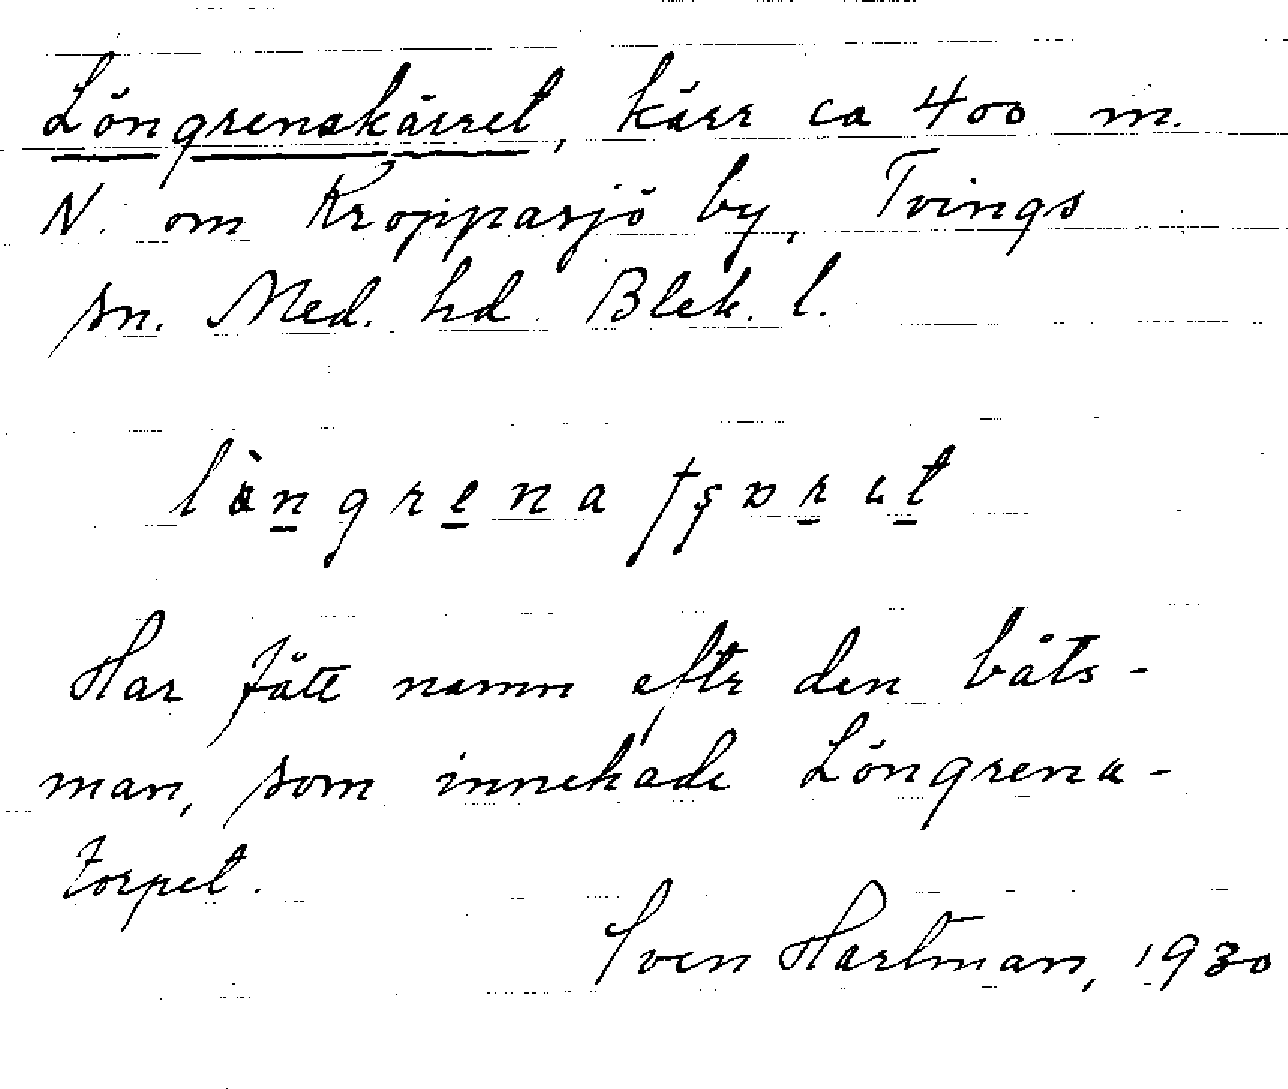 Löngrenakärret, kärr ca 400 m.
N. om Kroppasjö by, Tvings
sn. Med. hd. Blek. l.
Har fått namn eftr den båts-
man, som innehade Löngrena-
torpet.
Sven Hartman, 1930